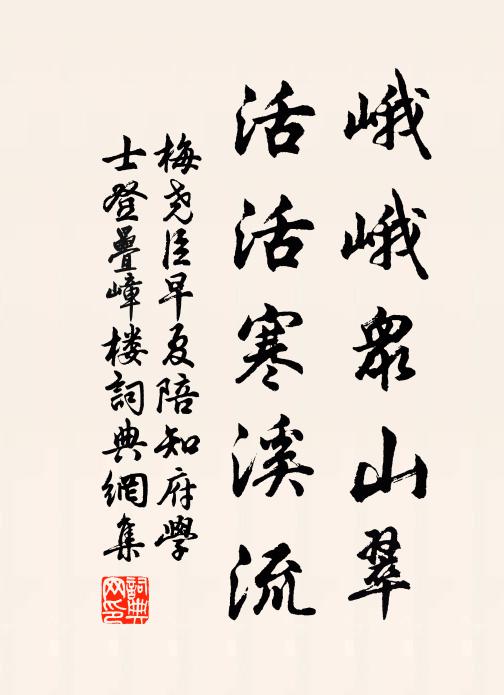 峨峨眾山翠
活活寒溪流
梅堯臣早夏陪知府學
士登疊嶂樓詞典網集
詞典網印